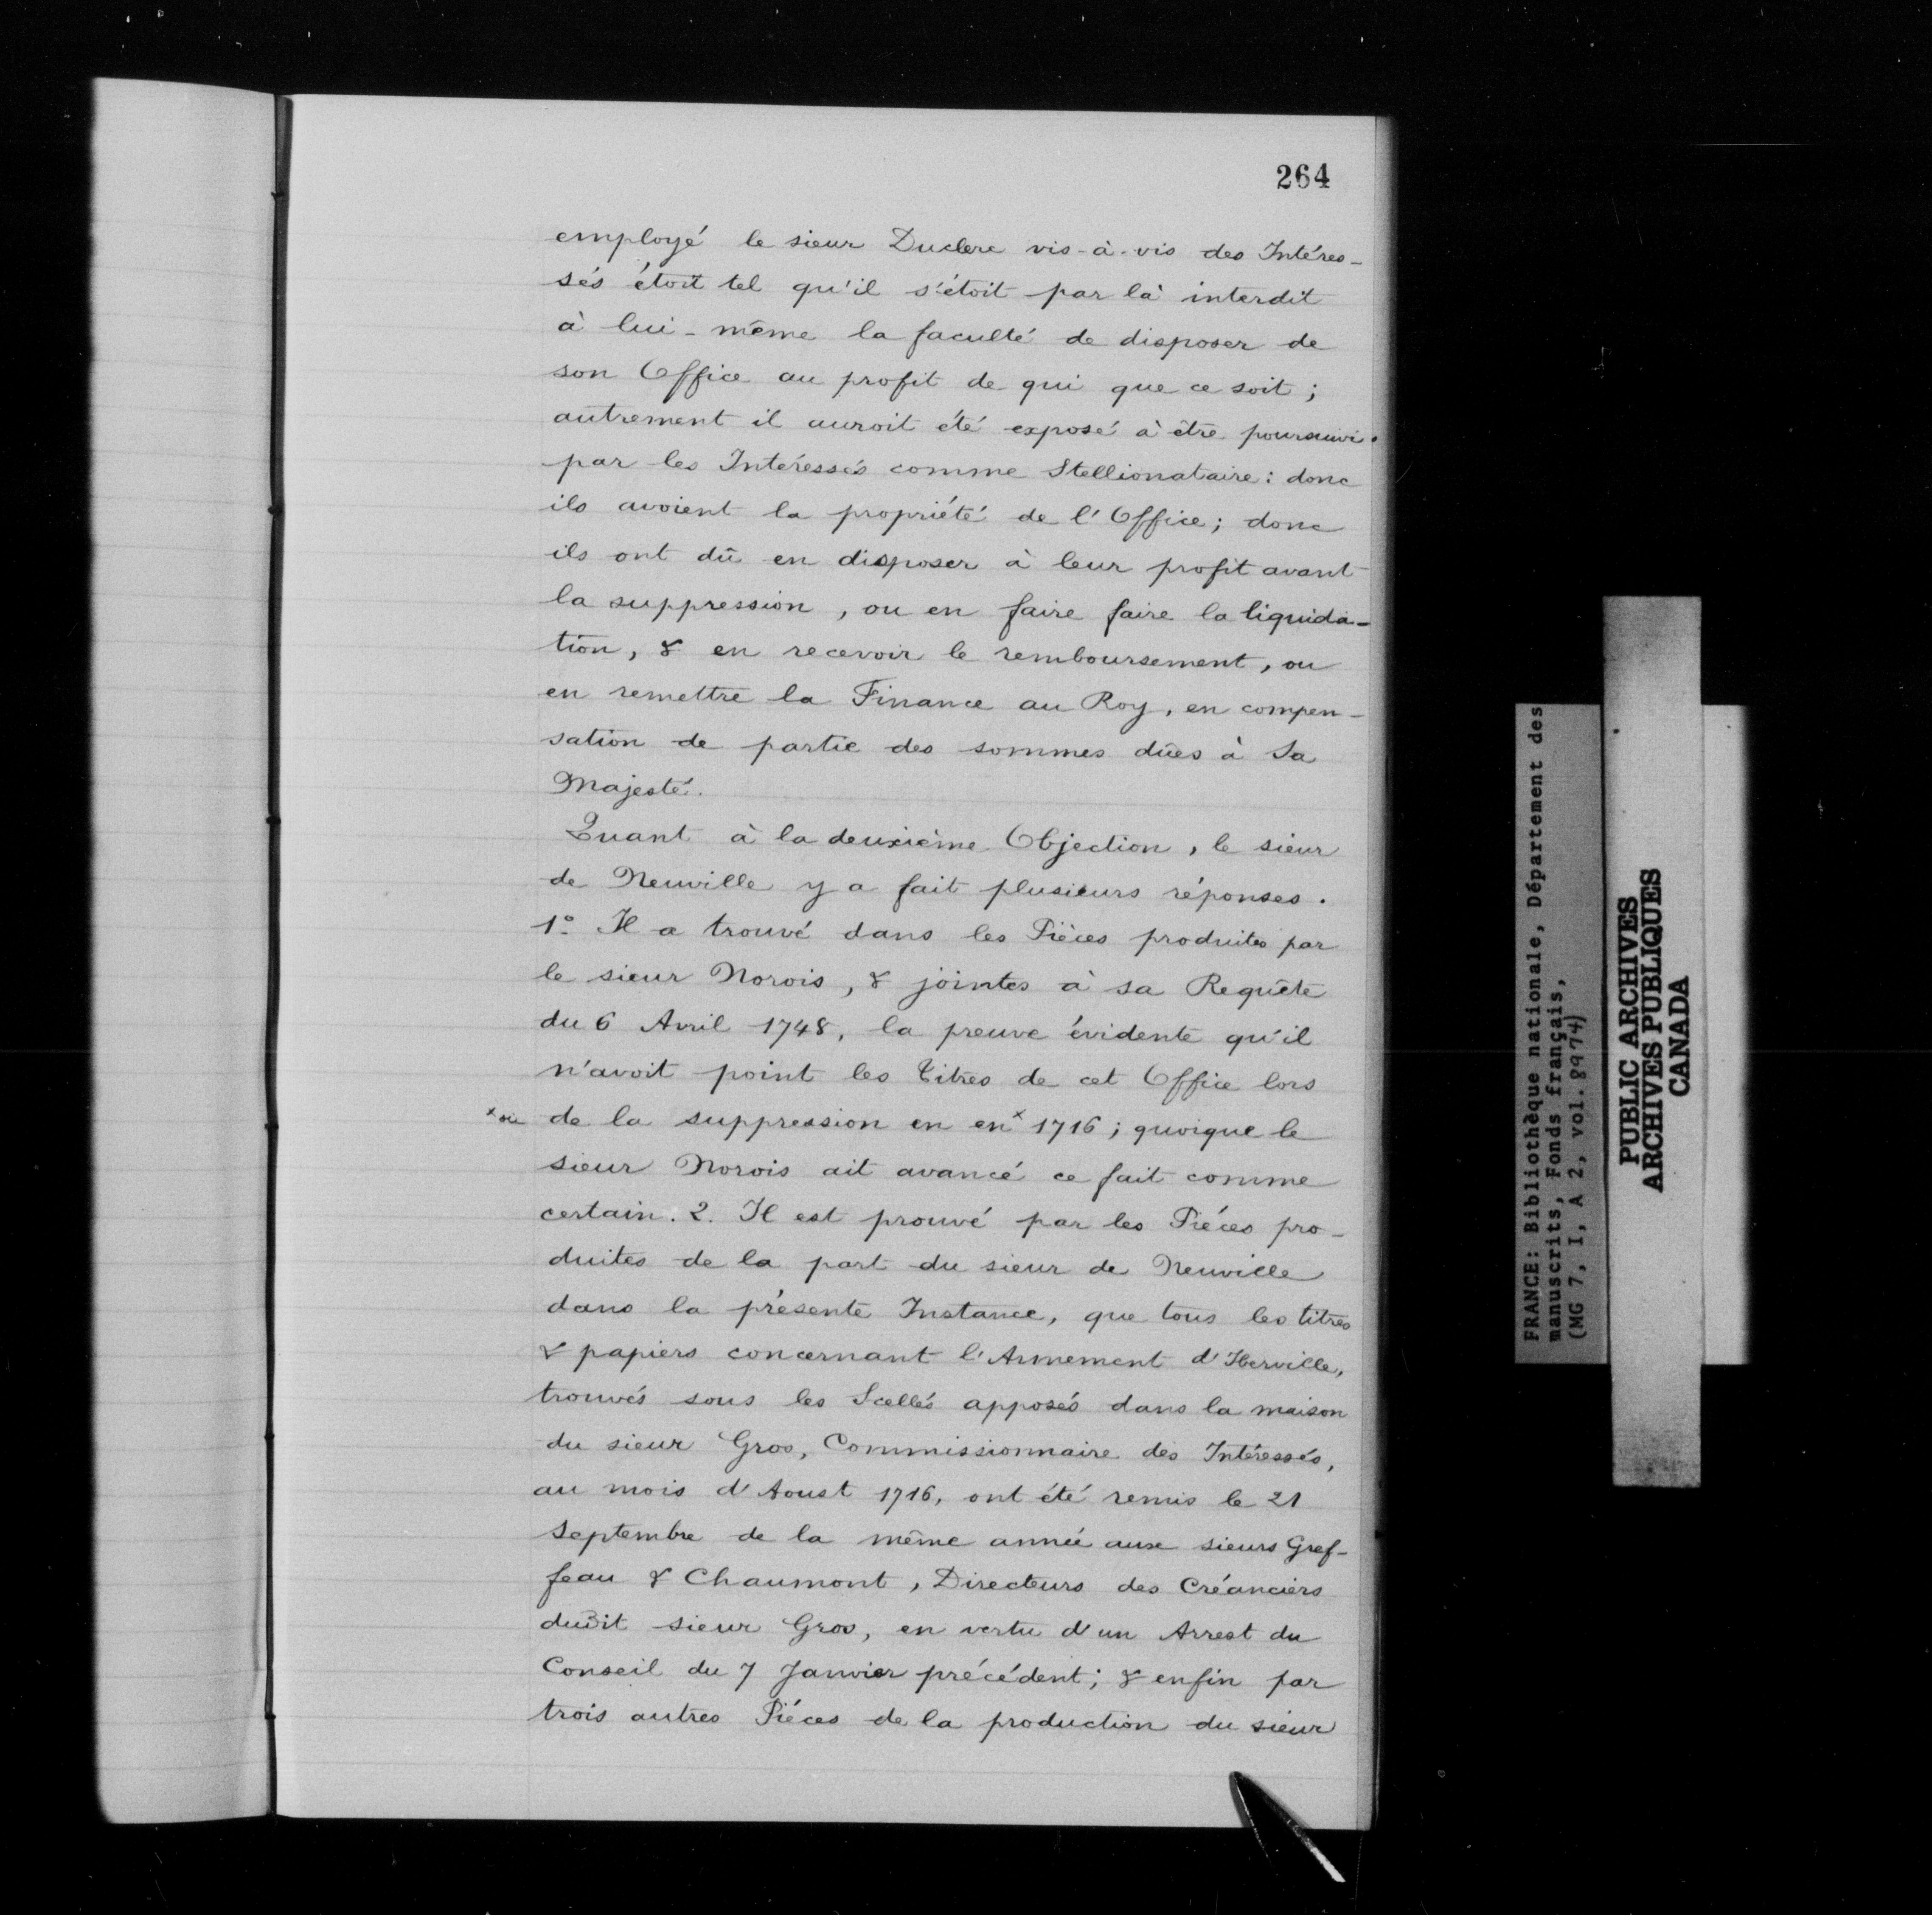 264
employé le sieur Duclerc vis-à-vis des Intéres-
sés étoit tel qu'il s'étoit par là interdit
à lui-même la faculté de disposer de
son Office au profit de qui que ce soit;
autrement il auroit été exposé à être poursuivi
par les Intéressés comme Stellionataire: donc
ils avoient la propriété de l'Office; donc
ils ont dû en disposer à leur profit avant
la suppression, ou en faire faire la liquida-
tion, & en recevoir le remboursement, ou
en remettre la Finance au Roy, en compen-
sation de partie des sommes dûes à Sa
Majesté.
Quant à la deuxième Objection, le sieur
de Neuville y a fait plusieurs réponses.
1.° Il a trouvé dans les Pièces produites par
le sieur Norois, & jointes à sa Requête
du 6 Avril 1748, la preuve évidente qu'il
n'avoit point les Titres de cet Office lors
x ou de la suppression en en x 1716; quoique le
sieur Norois ait avancé ce fait comme
certain. 2. Il est prouvé par les Piéces pro-
duites de la part du sieur de Neuville
dans la présente Instance, que tous les titres
& papiers concernant l'Armement d'Iberville,
trouvés sous les Scellés apposés dans la maison
du sieur Gros, Commissionnaire des Intéressés,
au mois d'Aoust 1716, ont été remis le 21
Septembre de la même année aux sieurs Gref-
feau & Chaumont, Directeurs des Créanciers
dudit sieur Gros, en vertu d'un Arrest du
Conseil du 7 Janvier précédent; & enfin par
trois autres Piéces de la production du sieur
FRANCE: Bibliothèque nationale, Département des
manuscrits, Fonds français,
(MG 7, I, A 2, vol. 8974)
PUBLIC ARCHIVES
ARCHIVES PUBLIQUES
CANADA